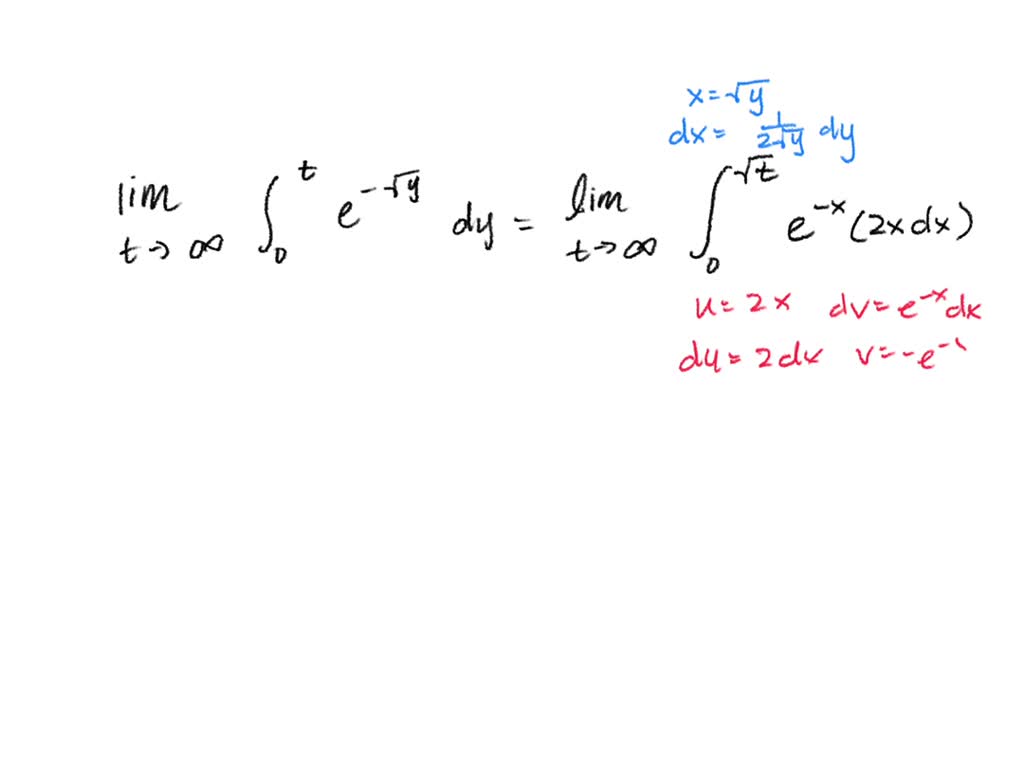 x=√y
dx= 1/(2√y) dy
lim t→∞ ∫₀^t e^(-√y) dy = lim t→∞ ∫₀^(√t) e^(-x) (2x dx)
u= 2x dv= e^(-x) dx
du= 2dx v= -e^-